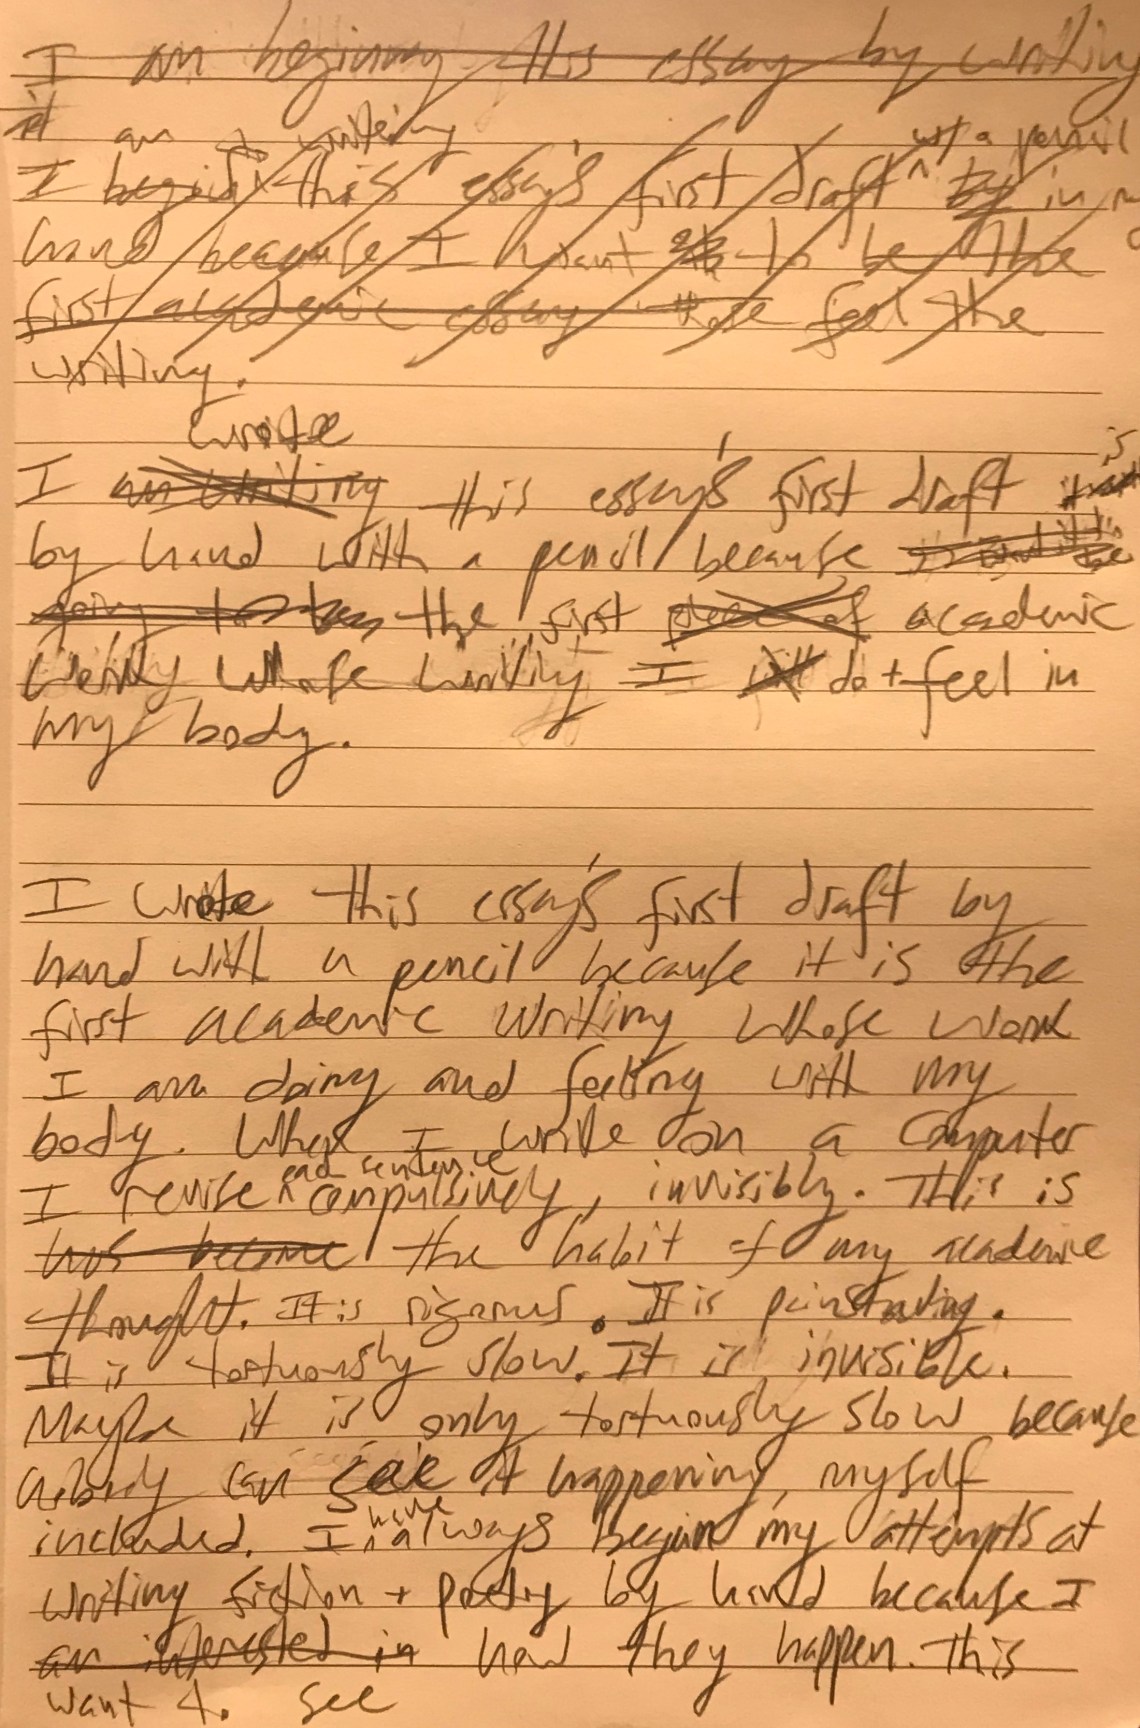 I am beginning this essay by writing
it
am writing w/ a pencil
I begin this essay's first draft ^ by in my
hand because I want to be the
first academic essay whose feel the
writing.
wrote
I am writing this essay's first draft is
by hand with a pencil because
going to be the first piece of academic
writing whose writing I will do + feel in
my body.
I wrote this essay's first draft by
hand with a pencil because it is the
first academic writing whose work
I am doing and feeling with my
body. When I write on a computer
each sentence
I revise ^ compulsively, invisibly. This is
has become the habit of my academic
thought. It is rigorous. It is painstaking.
It is tortuously slow. It is invisible.
Maybe it is only tortuously slow because
nobody can see it happening, myself
have
included. I ^ always begun my attempts at
writing fiction + poetry by hand because I
am interested in how they happen. This
want to see